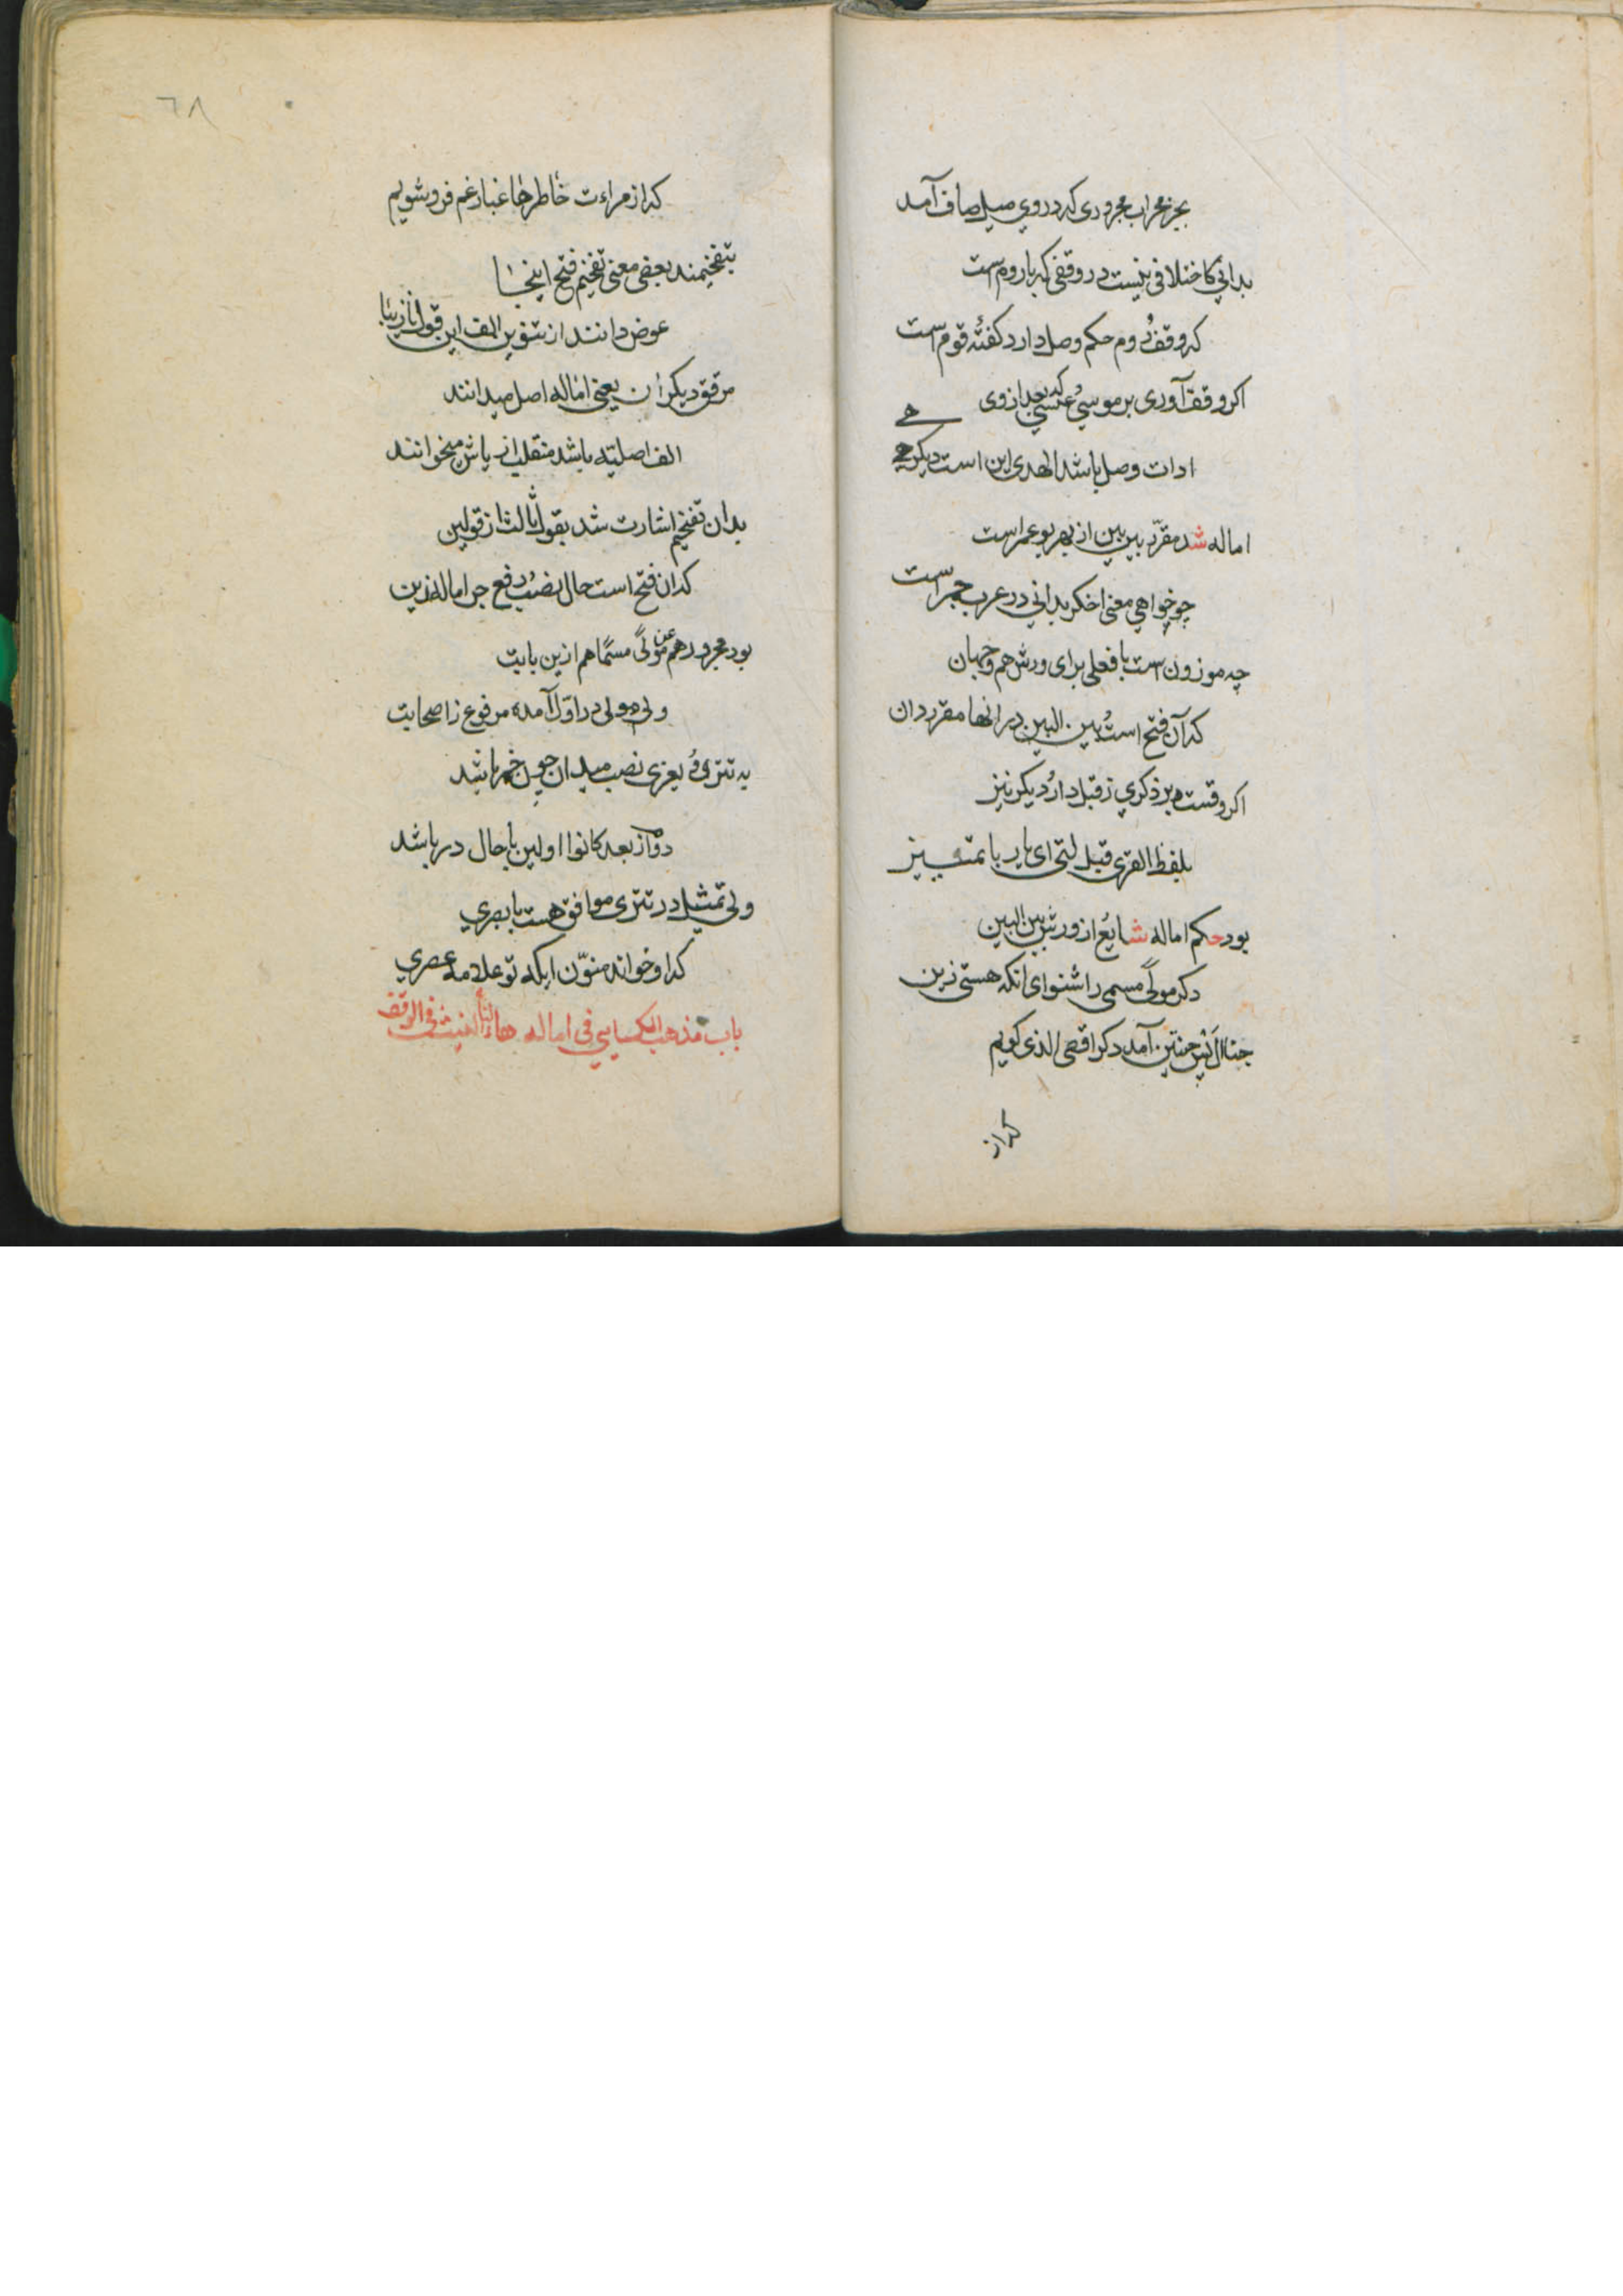 بجز محراب مجروری که در وی میل صاف آمد
بدانی کاختلافی نیست در وقفی که با روم است
که وقف و روم حکم وصل دارد کفته قوم است
اکر وقف آوری بر موسی و عیسی که بعد از وی
ادات وصل باشد الهدی این است دیکر هی
اماله شد مقرر بین بین از بهر بو عمر است
چو خواهی معنی اخکر بدانی در عرب جمر است
چه موزون است با فعلی برای ورش هم
که آن فتح است و بین البین در انها مقرر دان
اکر وقست بر ذکری ز قبل دار و دیکر نیز
بلفظ القری قبل لتی ای یار با تمییز
بود حکم اماله شایع از ورش بین البین
دکر مولی مسمی را شنو ای انکه هستی زین
جنا الجنتین آمد دکر اقصی الذی کویم
که از
٦٨
که از مراءت خاطرها غبار غم فرو شویم
بتفخیمند بعضی معنی تفخیم فتح اینجا
عوض دانند از تنوین الف این قول
مرقق دیکران یعنی اماله اصل میدانند
الف اصلیه باشد منقلب از یاش میخوانند
بدان تفخیم اشارت شد بقول ثالث از قولین
که ان فتح است حال نصب و رفع جر اماله زین
بود مجرور هم عن مولی مسما هم ازین بابت
ولی مولی در اول آمده مرفوع ز اصحابت
به تتری و بغزی نصب میدان چون خبر باشد
دو از بعد کانوا اولین با حال در باشد
ولی تمثیل در تتری موافق هست با بصری
که او خواند منون ایکه تو علامه عصری
باب مذهب الکسایی فی اماله هاء التانیث فی الوقف